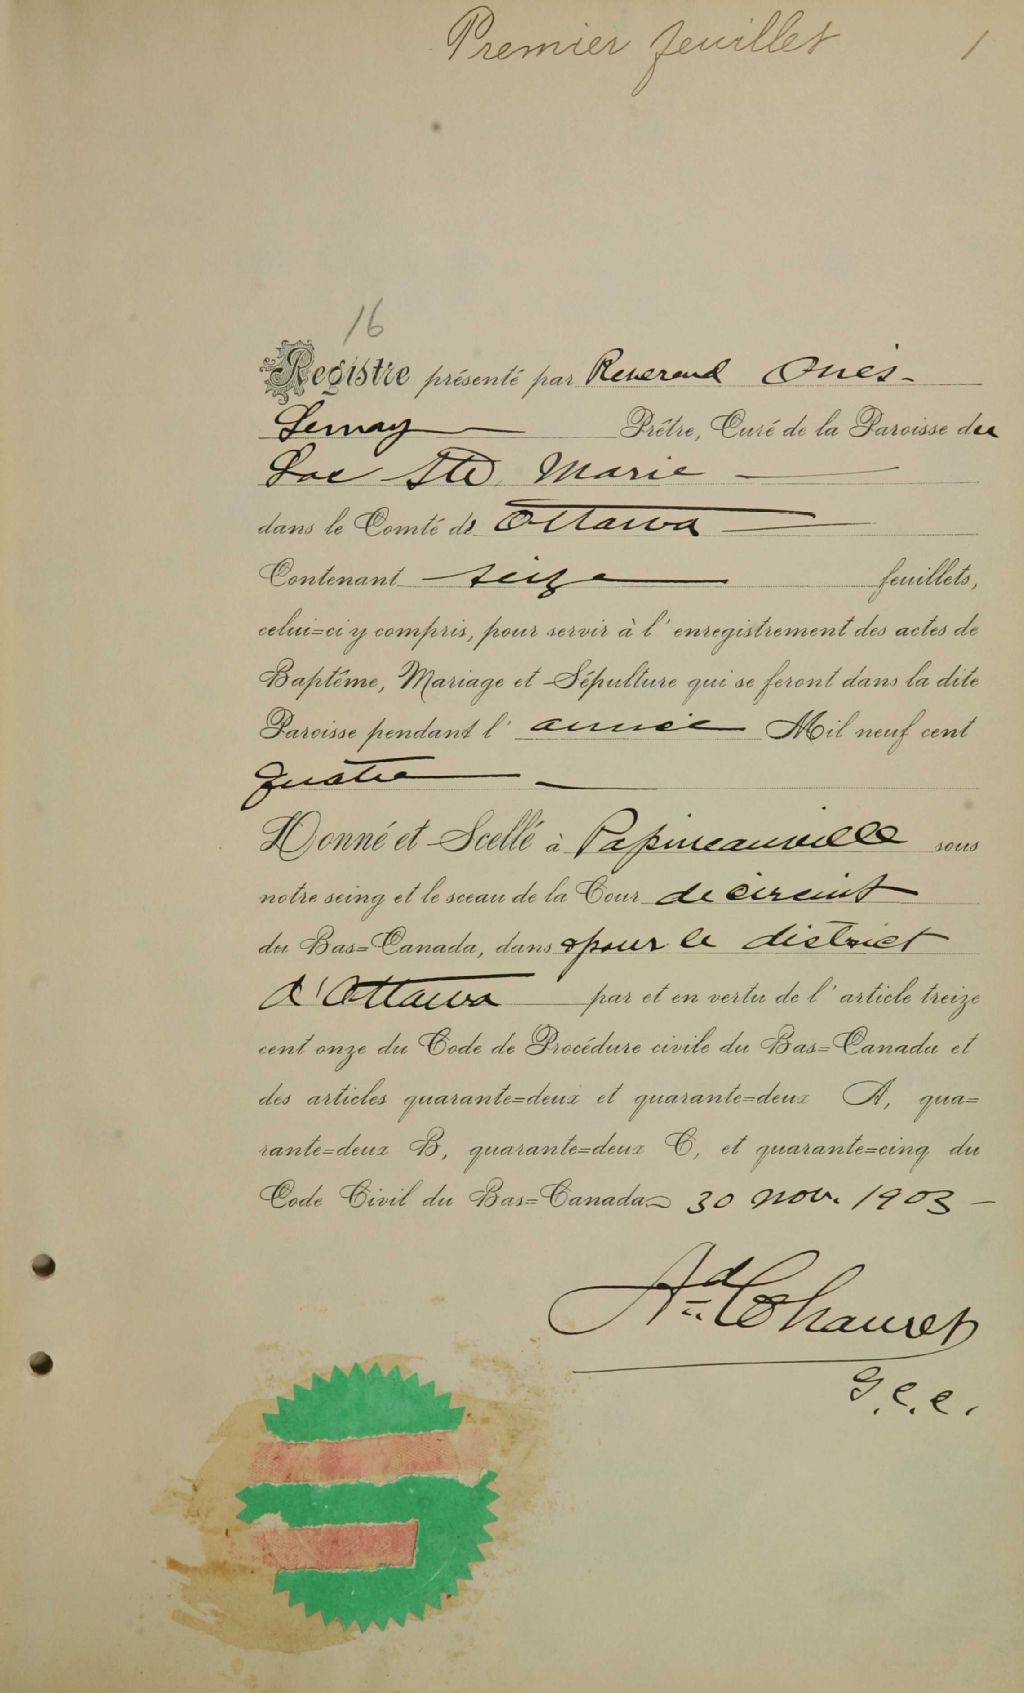 Premier feuillet 1
16
Registre présenté par Reverend Onés-
Lemay Prêtre, Curé de la Paroisse du
Lac Ste Marie
dans le Comté d' Ottawa
Contenant seize feuillets,
celui=ci y compris, pour servir à l'enregistrement des actes de
Baptême, Mariage et Sépulture qui se feront dans la dite
Paroisse pendant l' année Mil neuf cent
quatre
Donné et Scellé à Papineauville sous
notre seing et le sceau de la Cour de circuit
du Bas=Canada, dans & pour le district
d'Ottawa par et en vertu de l'article treize
cent onze du Code de Procédure civile du Bas=Canada et
des articles quarante=deux et quarante=deux A, qua=
rante=deux B, quarante=deux C, et quarante=cinq du
Code Civil du Bas=Canada 30 nov. 1903 -
G.C.C.